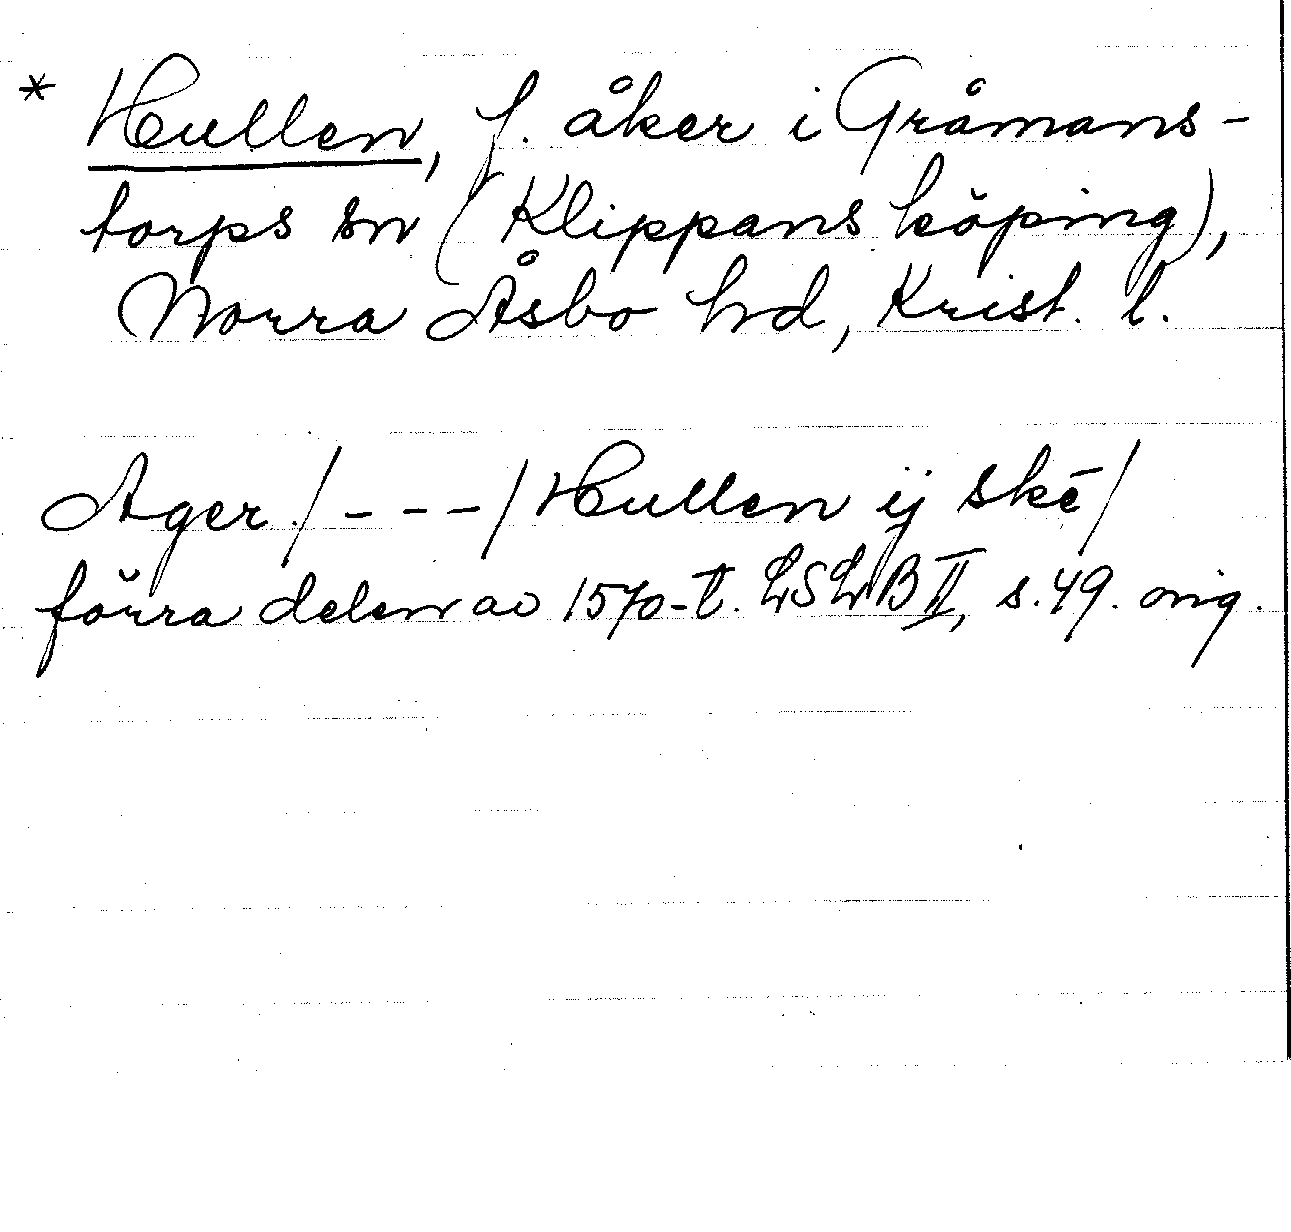 * Hullen, f. åker i Gråmans-
torps sn (Klippans köping),
Norra Åsbo hd, Krist. l.
Ager / - - - / Hullen ij skē /
förra delen av 1570-t. LSLB II, s. 49. orig.